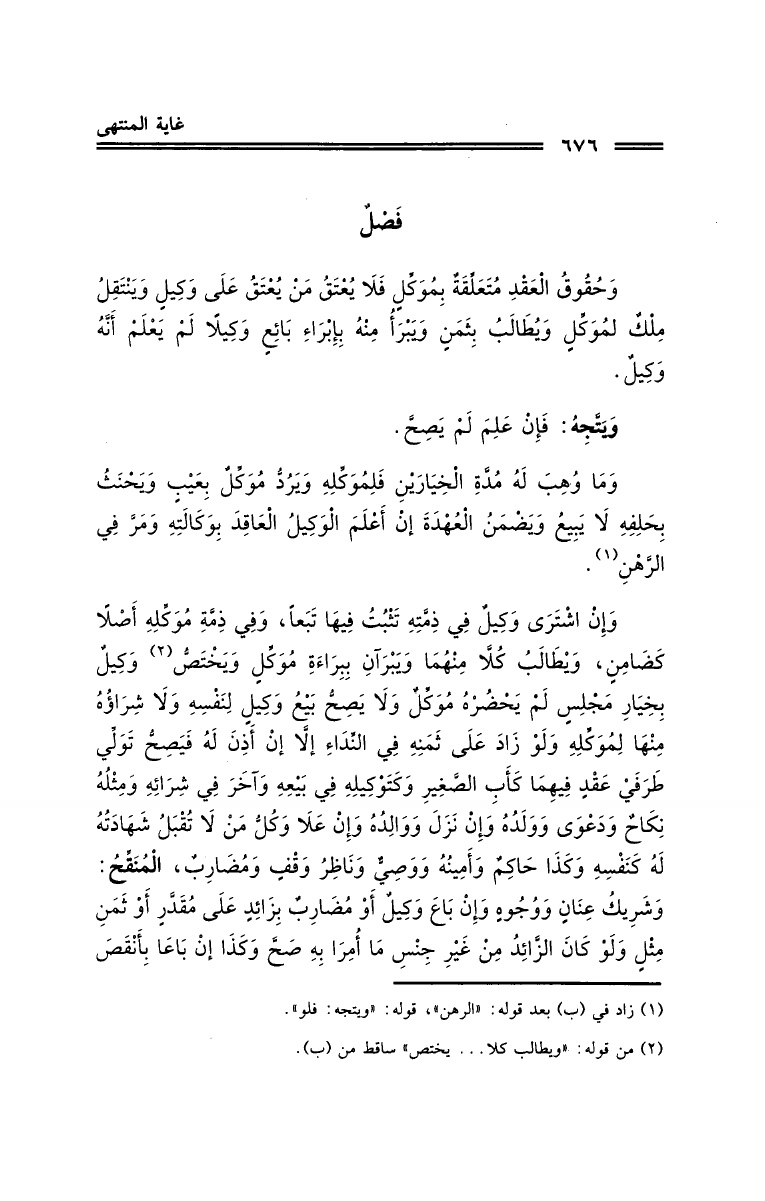 غاية المنتهى
٦٧٦
فَصْلٌ
وَحُقُوقُ الْعَقْدِ مُتَعَلِّقَةٌ بِمُوَكِّلٍ فَلَا يُعْتَقُ مَنْ يُعْتَقُ عَلَى وَكِيلٍ وَيَنْتَقِلُ
مِلْكٌ لمُوَكِّلٍ وَيُطَالَبُ بِثَمَنٍ وَيَبْرَأُ مِنْهُ بِإِبْرَاءِ بَائِعٍ وَكِيلًا لَمْ يَعْلَمْ أَنَّهُ
وَكِيلٌ.
وَيَتَّجِهُ: فَإِنْ عَلِمَ لَمْ يَصِحَّ.
وَمَا وُهِبَ لَهُ مُدَّةِ الْخِيَارَيْنِ فَلِمُوَكِّلِهِ وَيَرُدُّ مُوَكِّلٌ بِعَيْبٍ وَيَحْنَثُ
بِحَلِفِهِ لَا يَبِيعُ وَيَضْمَنُ الْعُهْدَةَ إنْ أَعْلَمَ الْوَكِيلُ الْعَاقِدَ بِوَكَالَتِهِ وَمَرَّ فِي
الرَّهْنِ(١).
وَإِنْ اشْتَرَى وَكِيلٌ فِي ذِمَّتِهِ تَثْبُتُ فِيهَا تَبَعاً، وَفِي ذِمَّةِ مُوَكِّلِهِ أَصْلًا
كَضَامِنٍ، وَيْطَالَبُ كُلَّا مِنْهُمَا وَيَبْرَآنِ بِبِرَاءَةِ مُوَكِّلٍ وَيَخْتَصُّ(٢) وَكِيلٌ
بِخِيَارِ مَجْلِسٍ لَمْ يَحْضُرْهُ مُوَكِّلٌ وَلَا يَصِحُّ بَيْعُ وَكِيلٍ لِنَفْسِهِ وَلَا شِرَاؤُهُ
مِنْهَا لِمُوَكِّلِهِ وَلَوْ زَادَ عَلَى ثَمَنِهِ فِي النِّدَاءِ إلَّا إنْ أَذِنَ لَهُ فَيَصِحُّ تَوَلِّي
طَرَفَيْ عَقْدٍ فِيهِمَا كَأَبِ الصَّغِيرِ وَكَتَوْكِيلِهِ فِي بَيْعِهِ وَآخَرَ فِي شِرَائِهِ وَمِثْلُهُ
نِكَاحٌ وَدَعْوَى وَوَلَدُهُ وَإِنْ نَزَلَ وَوَالِدُهُ وَإِنْ عَلَا وَكُلُّ مَنْ لَا تُقْبَلُ شَهَادَتُهُ
لَهُ كَنَفْسِهِ وَكَذَا حَاكِمٌ وَأَمِينُهُ وَوَصِيٌّ وَنَاظِرُ وَقْفٍ وَمُضَارِبٌ، الْمُنَقِّحُ:
وَشَرِيكُ عِنَانٍ وَوُجُوهٍ وَإِنْ بَاعَ وَكِيلٌ أَوْ مُضَارِبٌ بِزَائِدٍ عَلَى مُقَدَّرٍ أَوْ ثَمَنِ
مِثْلٍ وَلَوْ كَانَ الزَّائِدُ مِنْ غَيْرِ جِنْسِ مَا أُمِرَا بِهِ صَحَّ وَكَذَا إنْ بَاعَا بِأَنْقَصَ
(١) زاد في (ب) بعد قوله: «الرهن»، قوله: «ويتجه: فلو».
(٢) من قوله: «ويطالب كلا... يختص» ساقط من (ب).